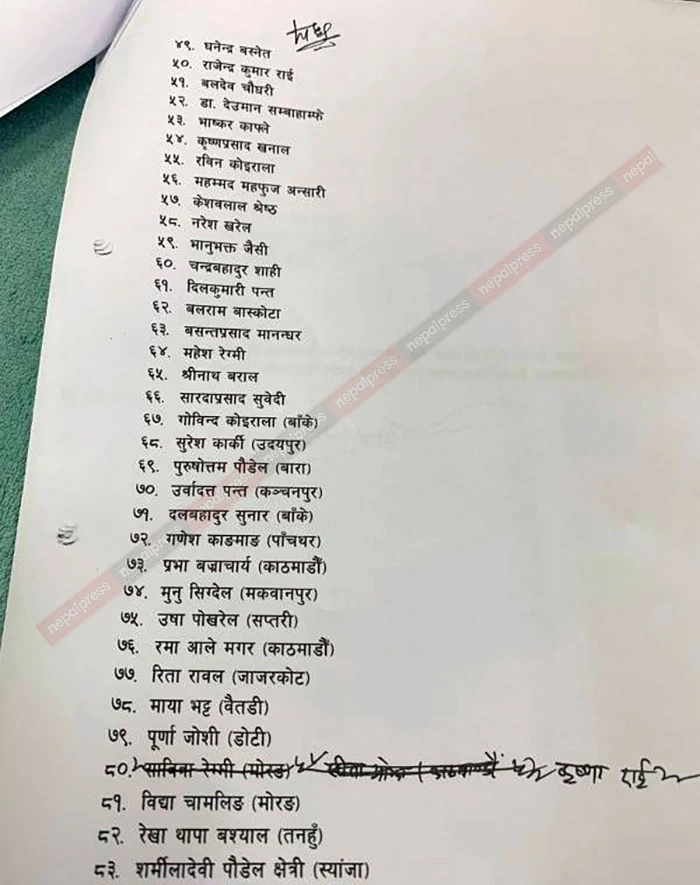 ४९. घनेन्द्र बस्नेत
५०. राजेन्द्र कुमार राई
५१. बलदेव चौधरी
५२. डा. देउमान सम्बाहाम्फे
५३. भाष्कर काफ्ले
५४. कृष्णप्रसाद खनाल
५५. रविन कोइराला
५६. महम्मद महफुज अन्सारी
५७. केशवलाल श्रेष्ठ
५८. नरेश खरेल
५९. भानुभक्त जैसी
६०. चन्द्रबहादुर शाही
६१. दिलकुमारी पन्त
६२. बलराम बास्कोटा
६३. बसन्तप्रसाद मानन्धर
६४. महेश रेग्मी
६५. श्रीनाथ बराल
६६. सारदाप्रसाद सुवेदी
६७. गोविन्द कोइराला (बाँके)
६८. सुरेश कार्की (उदयपुर)
६९. पुरुषोत्तम पौडेल (बारा)
७०. उर्वादत्त पन्त (कञ्चनपुर)
७१. दलबहादुर सुनार (बाँके)
७२. गणेश काङमाङ (पाँचथर)
७३. प्रभा बज्राचार्य (काठमाडौं)
७४. मुनु सिग्देल (मकवानपुर)
७५. उषा पोखरेल (सप्तरी)
७६. रमा आले मगर (काठमाडौं)
७७. रिता रावल (जाजरकोट)
७८. माया भट्ट (वैतडी)
७९. पूर्णा जोशी (डोटी)
८०. साबित्रा रेग्मी (मोरङ) कृष्णा राई
८१. विद्या चामलिङ (मोरङ)
८२. रेखा थापा बश्याल (तनहुँ)
८३. शर्मीलादेवी पौडेल क्षेत्री (स्यांजा)
nepalpress nepalpress nepalpress nepalpress nepalpress nepalpress nepalpress nepal